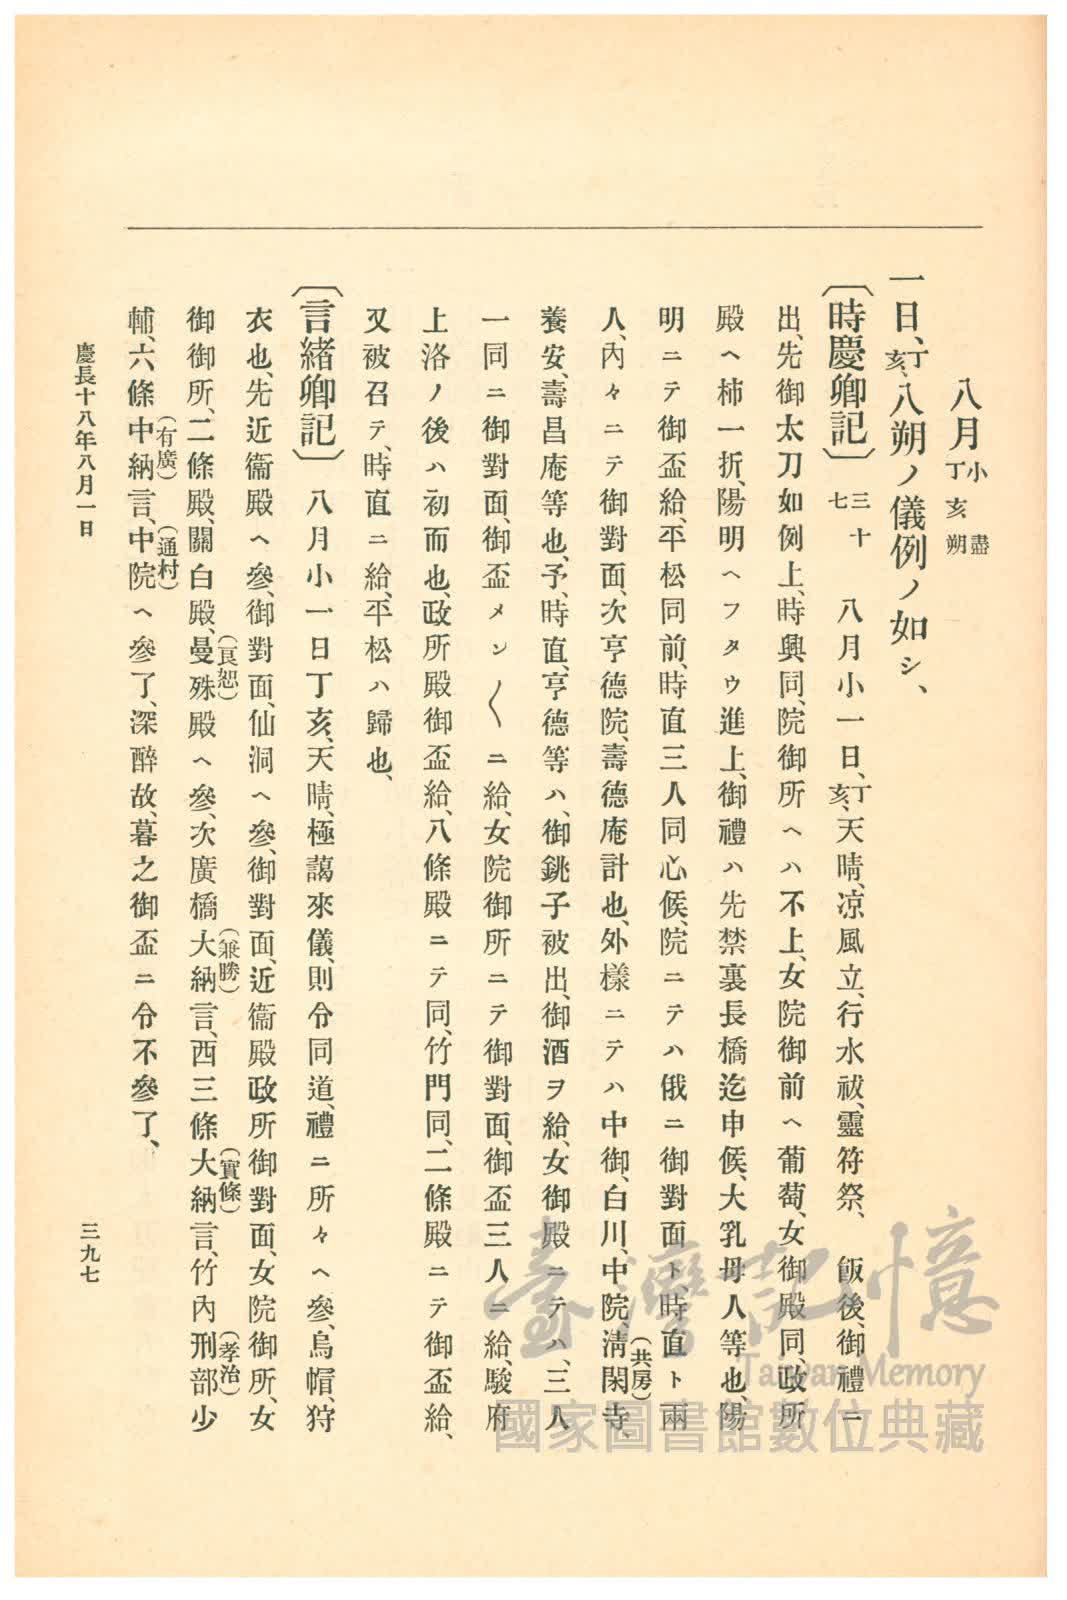 八月小盡丁亥朔
一日、丁亥、八朔ノ儀例ノ如シ、
〔時慶卿記〕三十七 八月小一日、丁亥、天晴、凉風立、行水祓、靈符祭、飯後、御禮ニ
出、先御太刀如例上、時興同、院御所ヘハ不上、女院御前ヘ葡萄、女御殿同、政所
殿ヘ柿一折、陽明ヘフタウ進上、御禮ハ先禁裏長橋迄申候、大乳母人等也、陽
明ニテ御盃給、平松同前、時直三人同心候、院ニテハ俄ニ御對面ト時直ト兩
人、內々ニテ御對面、次亨德院、壽德庵計也、外樣ニテハ中御、白川、中院淸閑寺、(共房)
養安、壽昌庵等也、予、時直、亨德等ハ、御銚子被出、御酒ヲ給、女御殿ニテハ、三人
一同ニ御對面、御盃メン〱ニ給、女院御所ニテ御對面、御盃三人ニ給、駿府
上洛ノ後ハ初而也、政所殿御盃給、八條殿ニテ同、竹門同、二條殿ニテ御盃給、
又被召テ、時直ニ給、平松ハ歸也、
〔言緖卿記〕八月小一日丁亥、天晴、極﨟來儀、則令同道、禮ニ所々ヘ參、烏帽、狩
衣也、先近衞殿ヘ參、御對面、仙洞ヘ參、御對面、近衞殿政所御對面、女院御所、女
御御所、二條殿、關白殿、曼殊殿(良恕)ヘ參、次廣橋大納言(兼勝)、西三條大納言(實條)、竹內刑部少(孝治)
輔、六條中納言(有廣)、中院(通村)ヘ參了、深醉故、暮之御盃ニ令不參了、
慶長十八年八月一日
三九七
臺灣記憶
Taiwan Memory
國家圖書館數位典藏